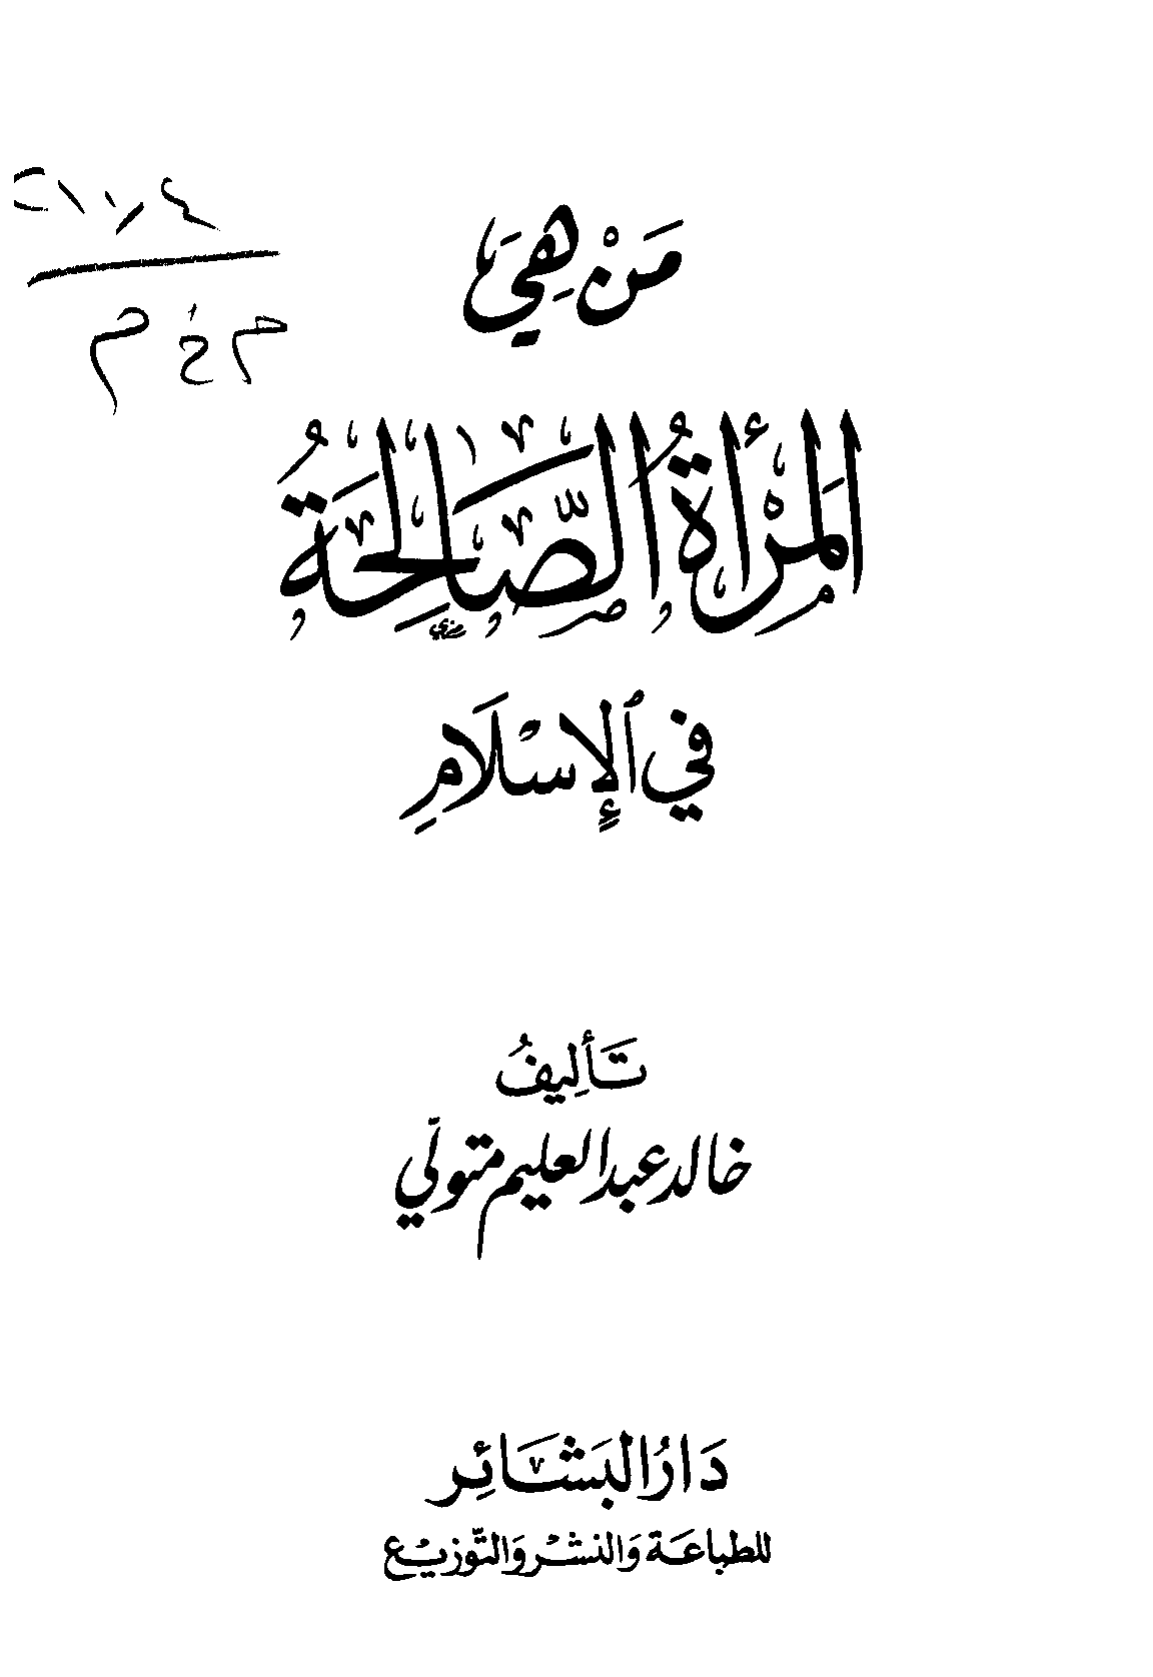 مَنْ هِيَ
المَرْأَةُ الصَّالِحَةُ
في الإِسْلَامِ
تَأليفُ
خالد عبد العليم متولّي
دَارُ البَشَائِر
للطباعَة وَالنشْر وَالتّوزيْع